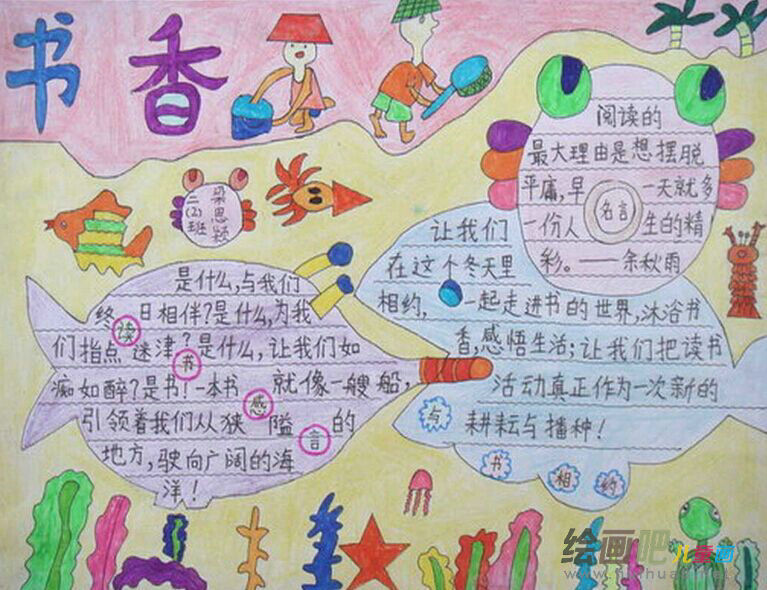 书香
阅读的
最大理由是想摆脱
平庸,早一天就多
名言
一份人生的精
彩。——余秋雨
梁思颖
二(2)班
是什么,与我们
终日相伴?是什么,为我
们指点迷津?是什么,让我们如
痴如醉?是书!一本书就像一艘船,
引领着我们从狭隘的
地方,驶向广阔的海
洋!
读
书
感
言
让我们
在这个冬天里
相约,一起走进书的世界,沐浴书
香,感悟生活;让我们把读书
活动真正作为一次新的
耕耘与播种!
与
书
相
约
绘画吧儿童画